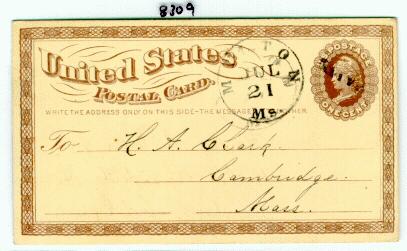 8309
United States
Postal Card.
WRITE THE ADDRESS ONLY ON THIS SIDE-THE MESSAGE ON THE OTHER.
JUL
21
Ms.
POSTAGE
ONE CENT
To H. A. Clark.
Cambridge.
Mass.